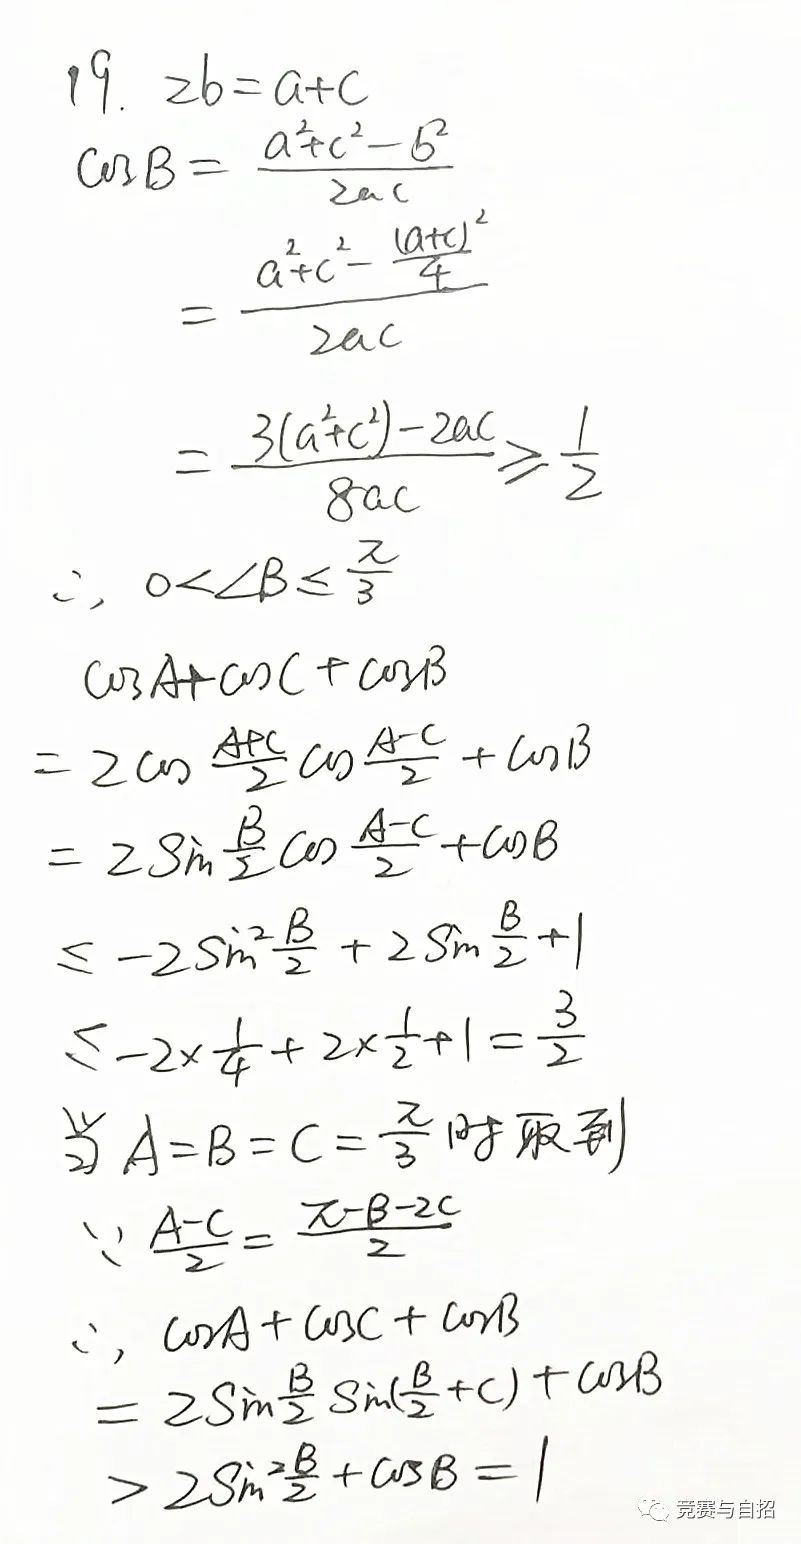 19. 2b=a+c
cosB = (a²+c²-b²)/(2ac)
= (a²+c²-(a+c)²/4)/(2ac)
= (3(a²+c²)-2ac)/(8ac) ≥ 1/2
∴, 0<∠B≤π/3
cosA+cosC+cosB
= 2cos (A+C)/2 cos (A-C)/2 + cosB
= 2sin B/2 cos (A-C)/2 + cosB
≤ -2sin² B/2 + 2sin B/2 + 1
≤ -2×1/4 + 2×1/2 + 1 = 3/2
当 A=B=C=π/3 时取到
∵ (A-C)/2 = (π-B-2C)/2
∴, cosA+cosC+cosB
= 2sin B/2 sin(B/2+C) + cosB
> 2sin² B/2 + cosB = 1
竞赛与自招